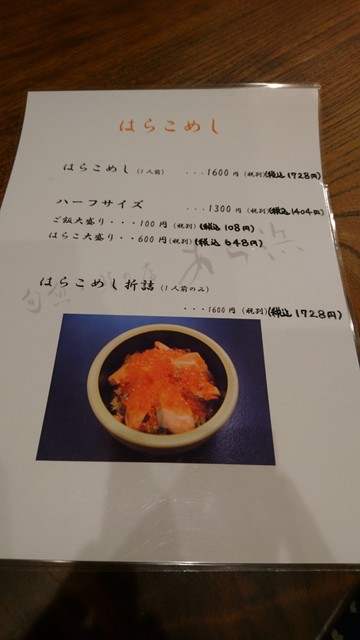 はらこめし
はらこめし (1人前) ・・・1600円(税別)(税込1728円)
ハーフサイズ ・・・1300円(税別)(税込1404円)
ご飯大盛り・・・100円(税別)(税込108円)
はらこ大盛り・・600円(税別)(税込648円)
あら浜
はらこめし折詰 (1人前のみ)
・・・1600円(税別)(税込1728円)